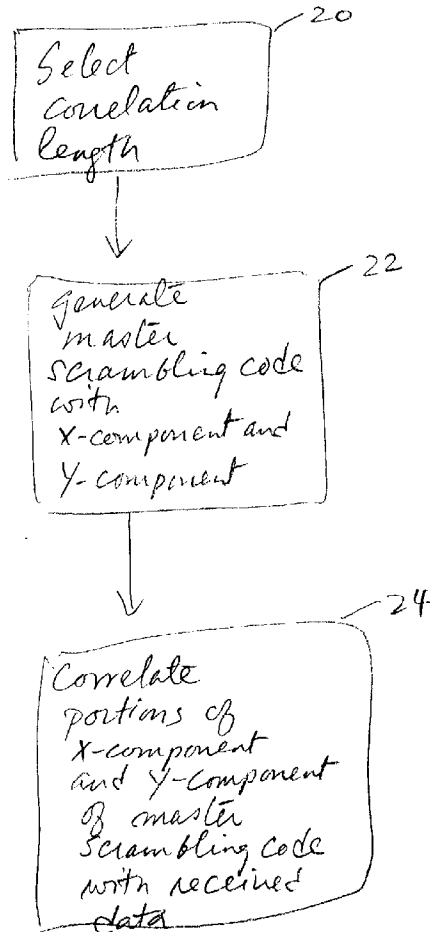 20
Select
correlation
length
22
generate
master
scrambling code
with
X-component and
Y-component
24
Correlate
portions of
X-component
and Y-component
of master
scrambling code
with received
data